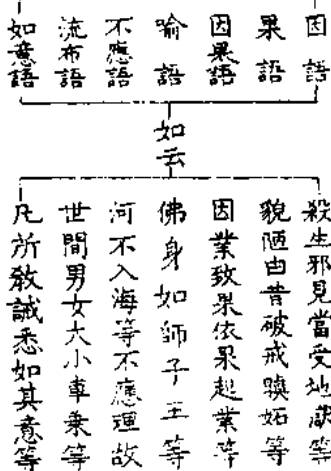 因語
果語
因果語
喻語
不應語
流布語
如意語
如云
殺生邪見當受地獄等
貌陋由昔破戒瞋妬等
因業致果依果起業等
佛身如師子王等
河不入海等不應理故
世間男女大小車乗等
凡所教誡悉如其意等